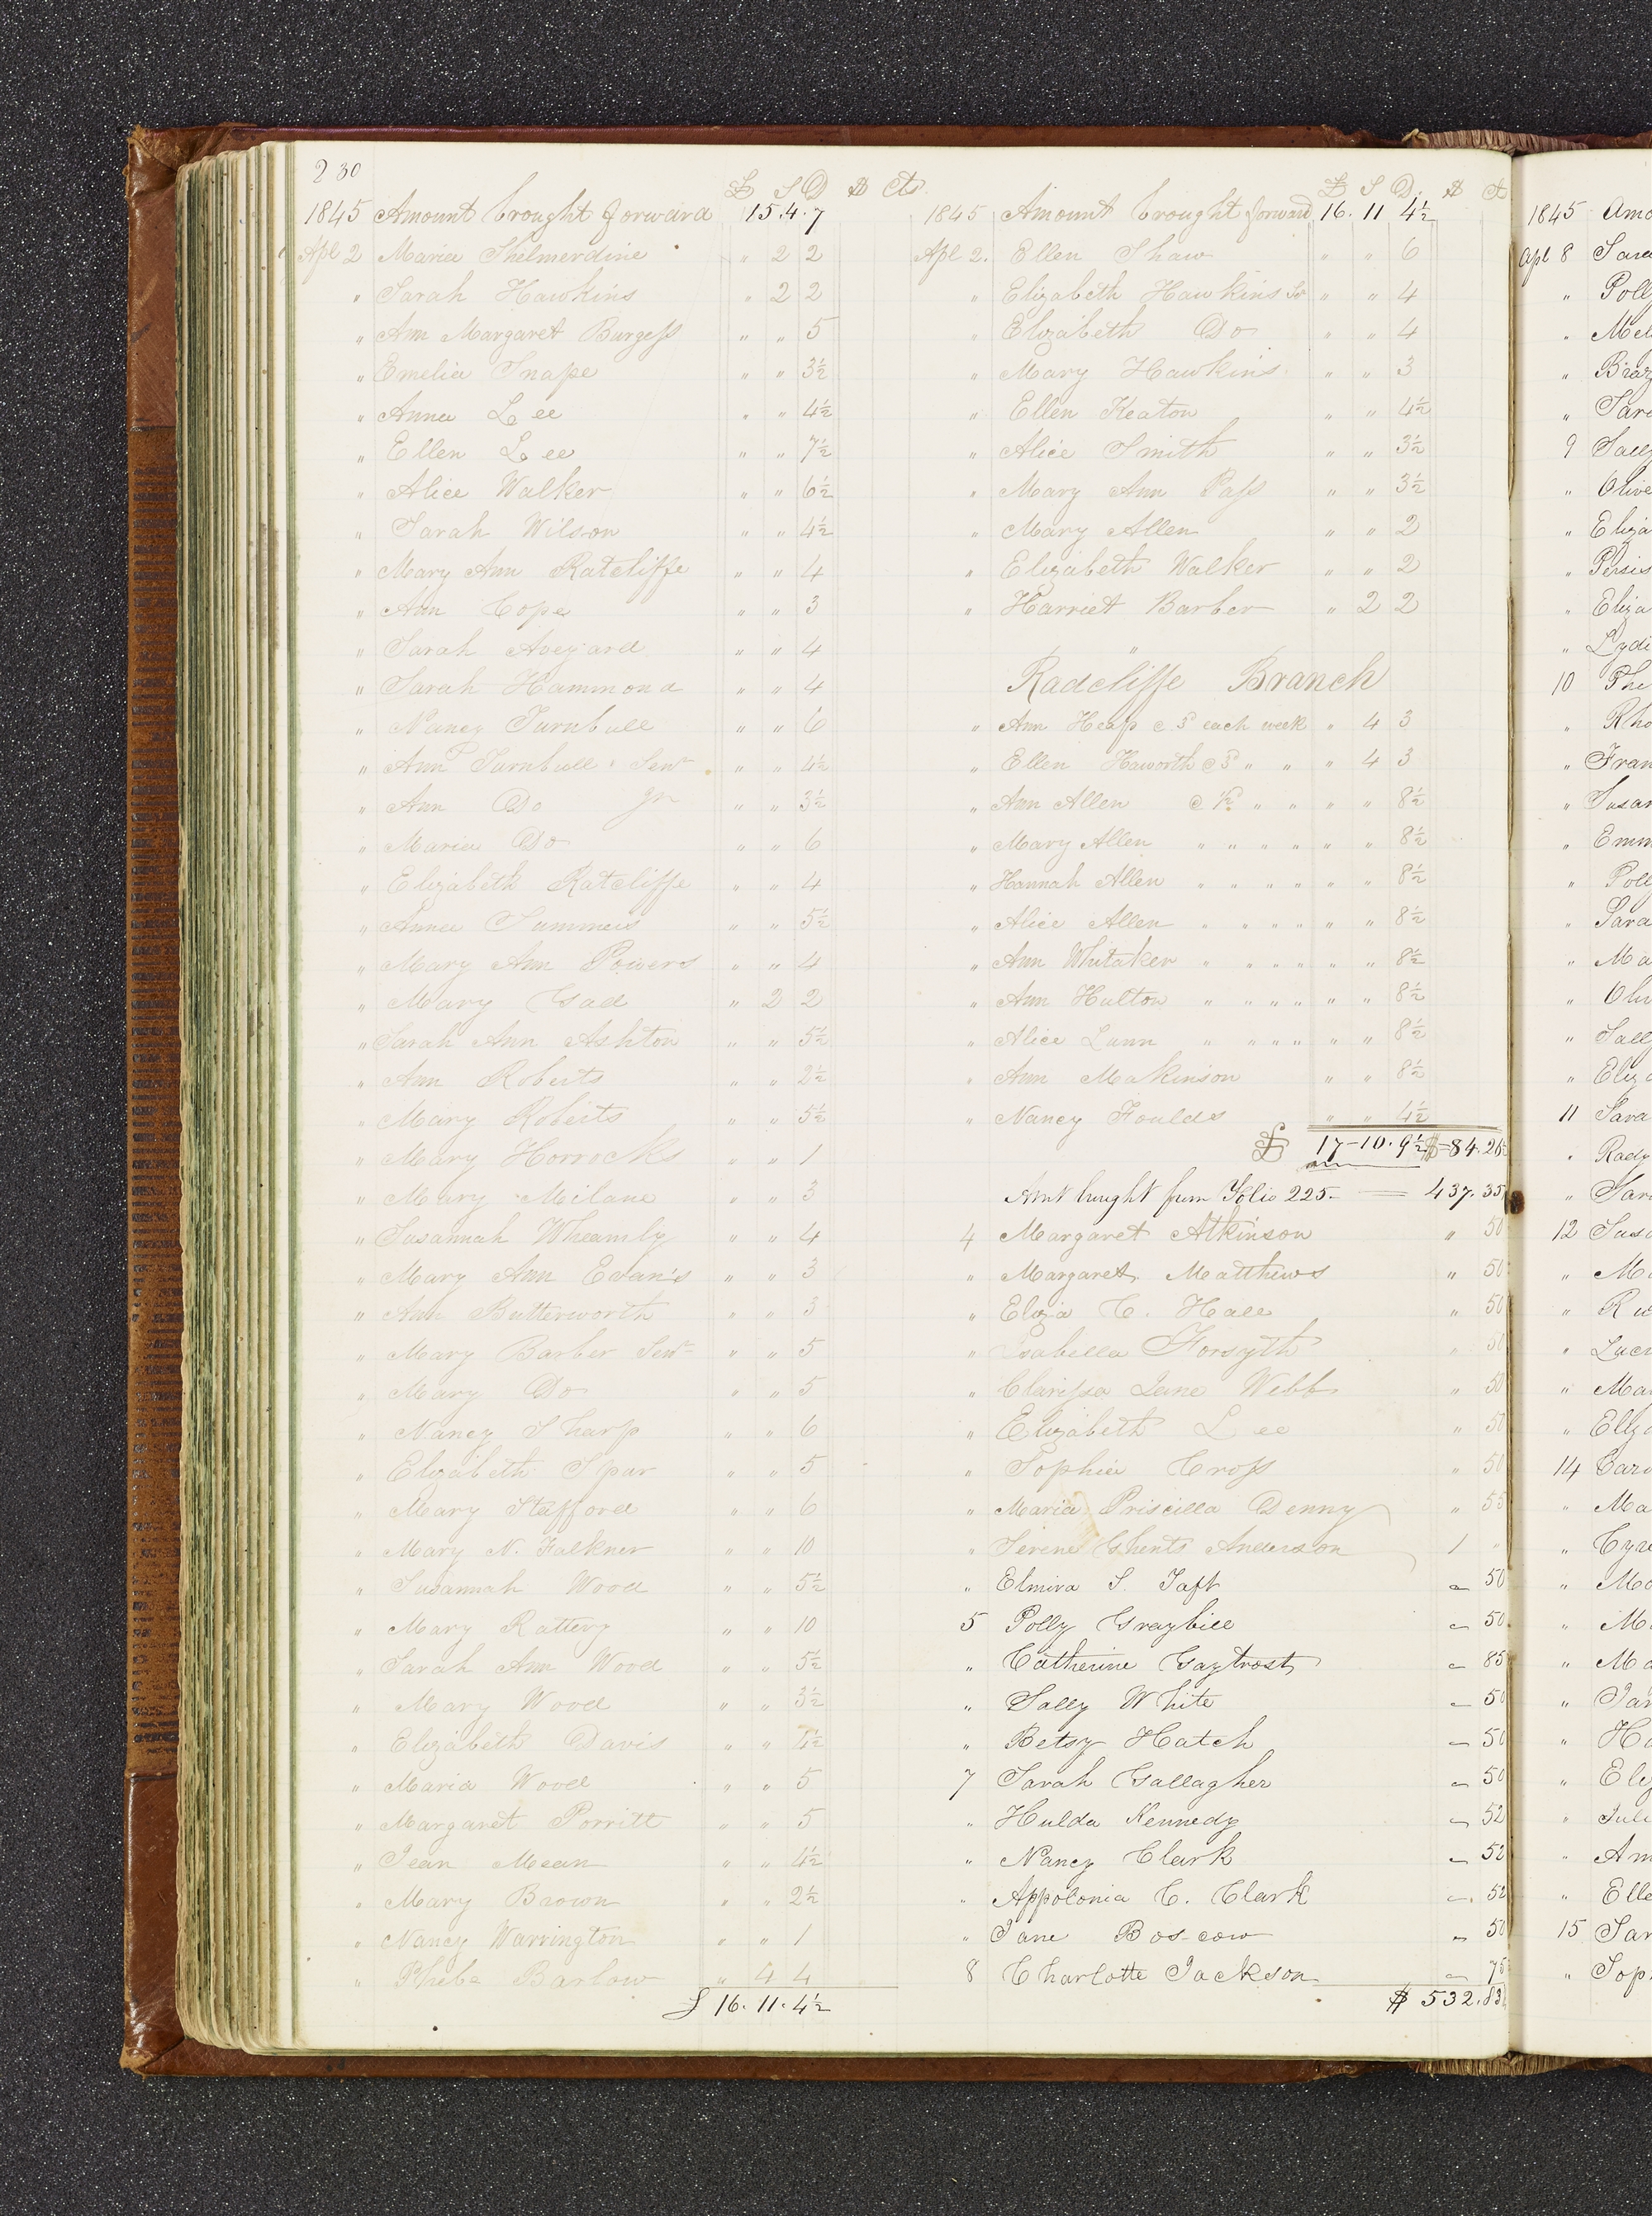 230
£ S D $ Cts
1845 Amount brought forward 15.4.7
Apl 2 Maria Shelmerdine " 2 2
" Sarah Hawkins " 2 2
" Ann Margaret Burgess " " 5
" Emelia Snape " " 3½
" Anna Lee " " 4½
" Ellen Lee " " 7½
" Alice Walker " " 6½
" Sarah Wilson " " 4½
" Mary Ann Ratcliffe " " 4
" Ann Cope " " 3
" Sarah Aveyard " " 4
" Sarah Hammond " " 4
" Nancy Turnbull " " 6
" Ann Turnbull Senr " " 4½
" Ann Do Jr " " 3½
" Maria Do " " 6
" Elizabeth Ratcliffe " " 4
" Anna Summers " " 5½
" Mary Ann Powers " " 4
" Mary Gad " 2 2
" Sarah Ann Ashton " " 5½
" Ann Roberts " " 2½
" Mary Roberts " " 5½
" Mary Horrocks " " 1
" Mary Milane " " 3
" Susannah Wheamly " " 4
" Mary Ann Edan's " " 3
" Ann Butterworth " " 3
" Mary Barber Senr " " 5
" Mary Do " " 5
" Nancy Sharp " " 6
" Elizabeth Spar " " 5
" Mary Stafford " " 6
" Mary N. Falkner " " 10
" Susannah Wood " " 5½
" Mary Rattery " " 10
" Sarah Ann Wood " " 5½
" Mary Wood " " 3½
" Elizabeth Davis " " 4½
" Maria Wood " " 5
" Margaret Porritt " " 5
" Jean Mean " " 4½
" Mary Brown " " 2½
" Nancy Warrington " " 1
" Phebe Barlow " 4 4
£ 16.11.4½
£ S D. $ Ct
1845 Amount brought forward 16.11 4½
Apl 2. Ellen Shaw " " 6
" Elizabeth Hawkins Sr " " 4
" Elizabeth Do " " 4
" Mary Hawkins " " 3
" Ellen Keaton " " 4½
" Alice Smith " " 3½
" Mary Ann Pass " " 3½
" Mary Allen " " 2
" Elizabeth Walker " " 2
" Harriet Barber " 2 2
"
Radcliffe Branch
" Ann Heap @ 3d each week " 4 3
" Ellen Haworth @ 3d " " " 4 3
" Ann Allen @ ½ " " " " 8½
" Mary Allen " " " " " " " 8½
" Hannah Allen " " " " " " " 8½
" Alice Allen " " " " " " " 8½
" Ann Whitaker " " " " " " " 8½
" Ann Hulton " " " " " " " 8½
" Alice Lunn " " " " " " " 8½
" Ann Makinson " " 8½
" Nancy Foulds " " 4½
£ 17-10.9½ $-84.26
Amt brought from Folio 225.- — 437.35
4 Margaret Atkinson " 50
" Margaret Matthews " 50
" Eliza C. Hall " 50
" Isabella Forsyth " 50
" Clarissa Jane Webb " 50
" Elizabeth Lee " 50
" Sophia Cross " 50
" Maria Priscilla Denny " 55
" Serene Ghents Anderson 1 "
" Elmira S. Taft " 50
5 Polly Graybill " 50
" Catherine Gaytrost " 85
" Sally White " 50
" Betsy Hatch " 50
7 Sarah Gallagher " 50
" Hulda Kennedy " 52
" Nancy Clark " 52
" Appolonia C. Clark " 52
" Jane Bos-cow " 50
8 Charlotte Jackson " 75
$ 532.83
1845
Apl 8
9
10
11
12
14
15